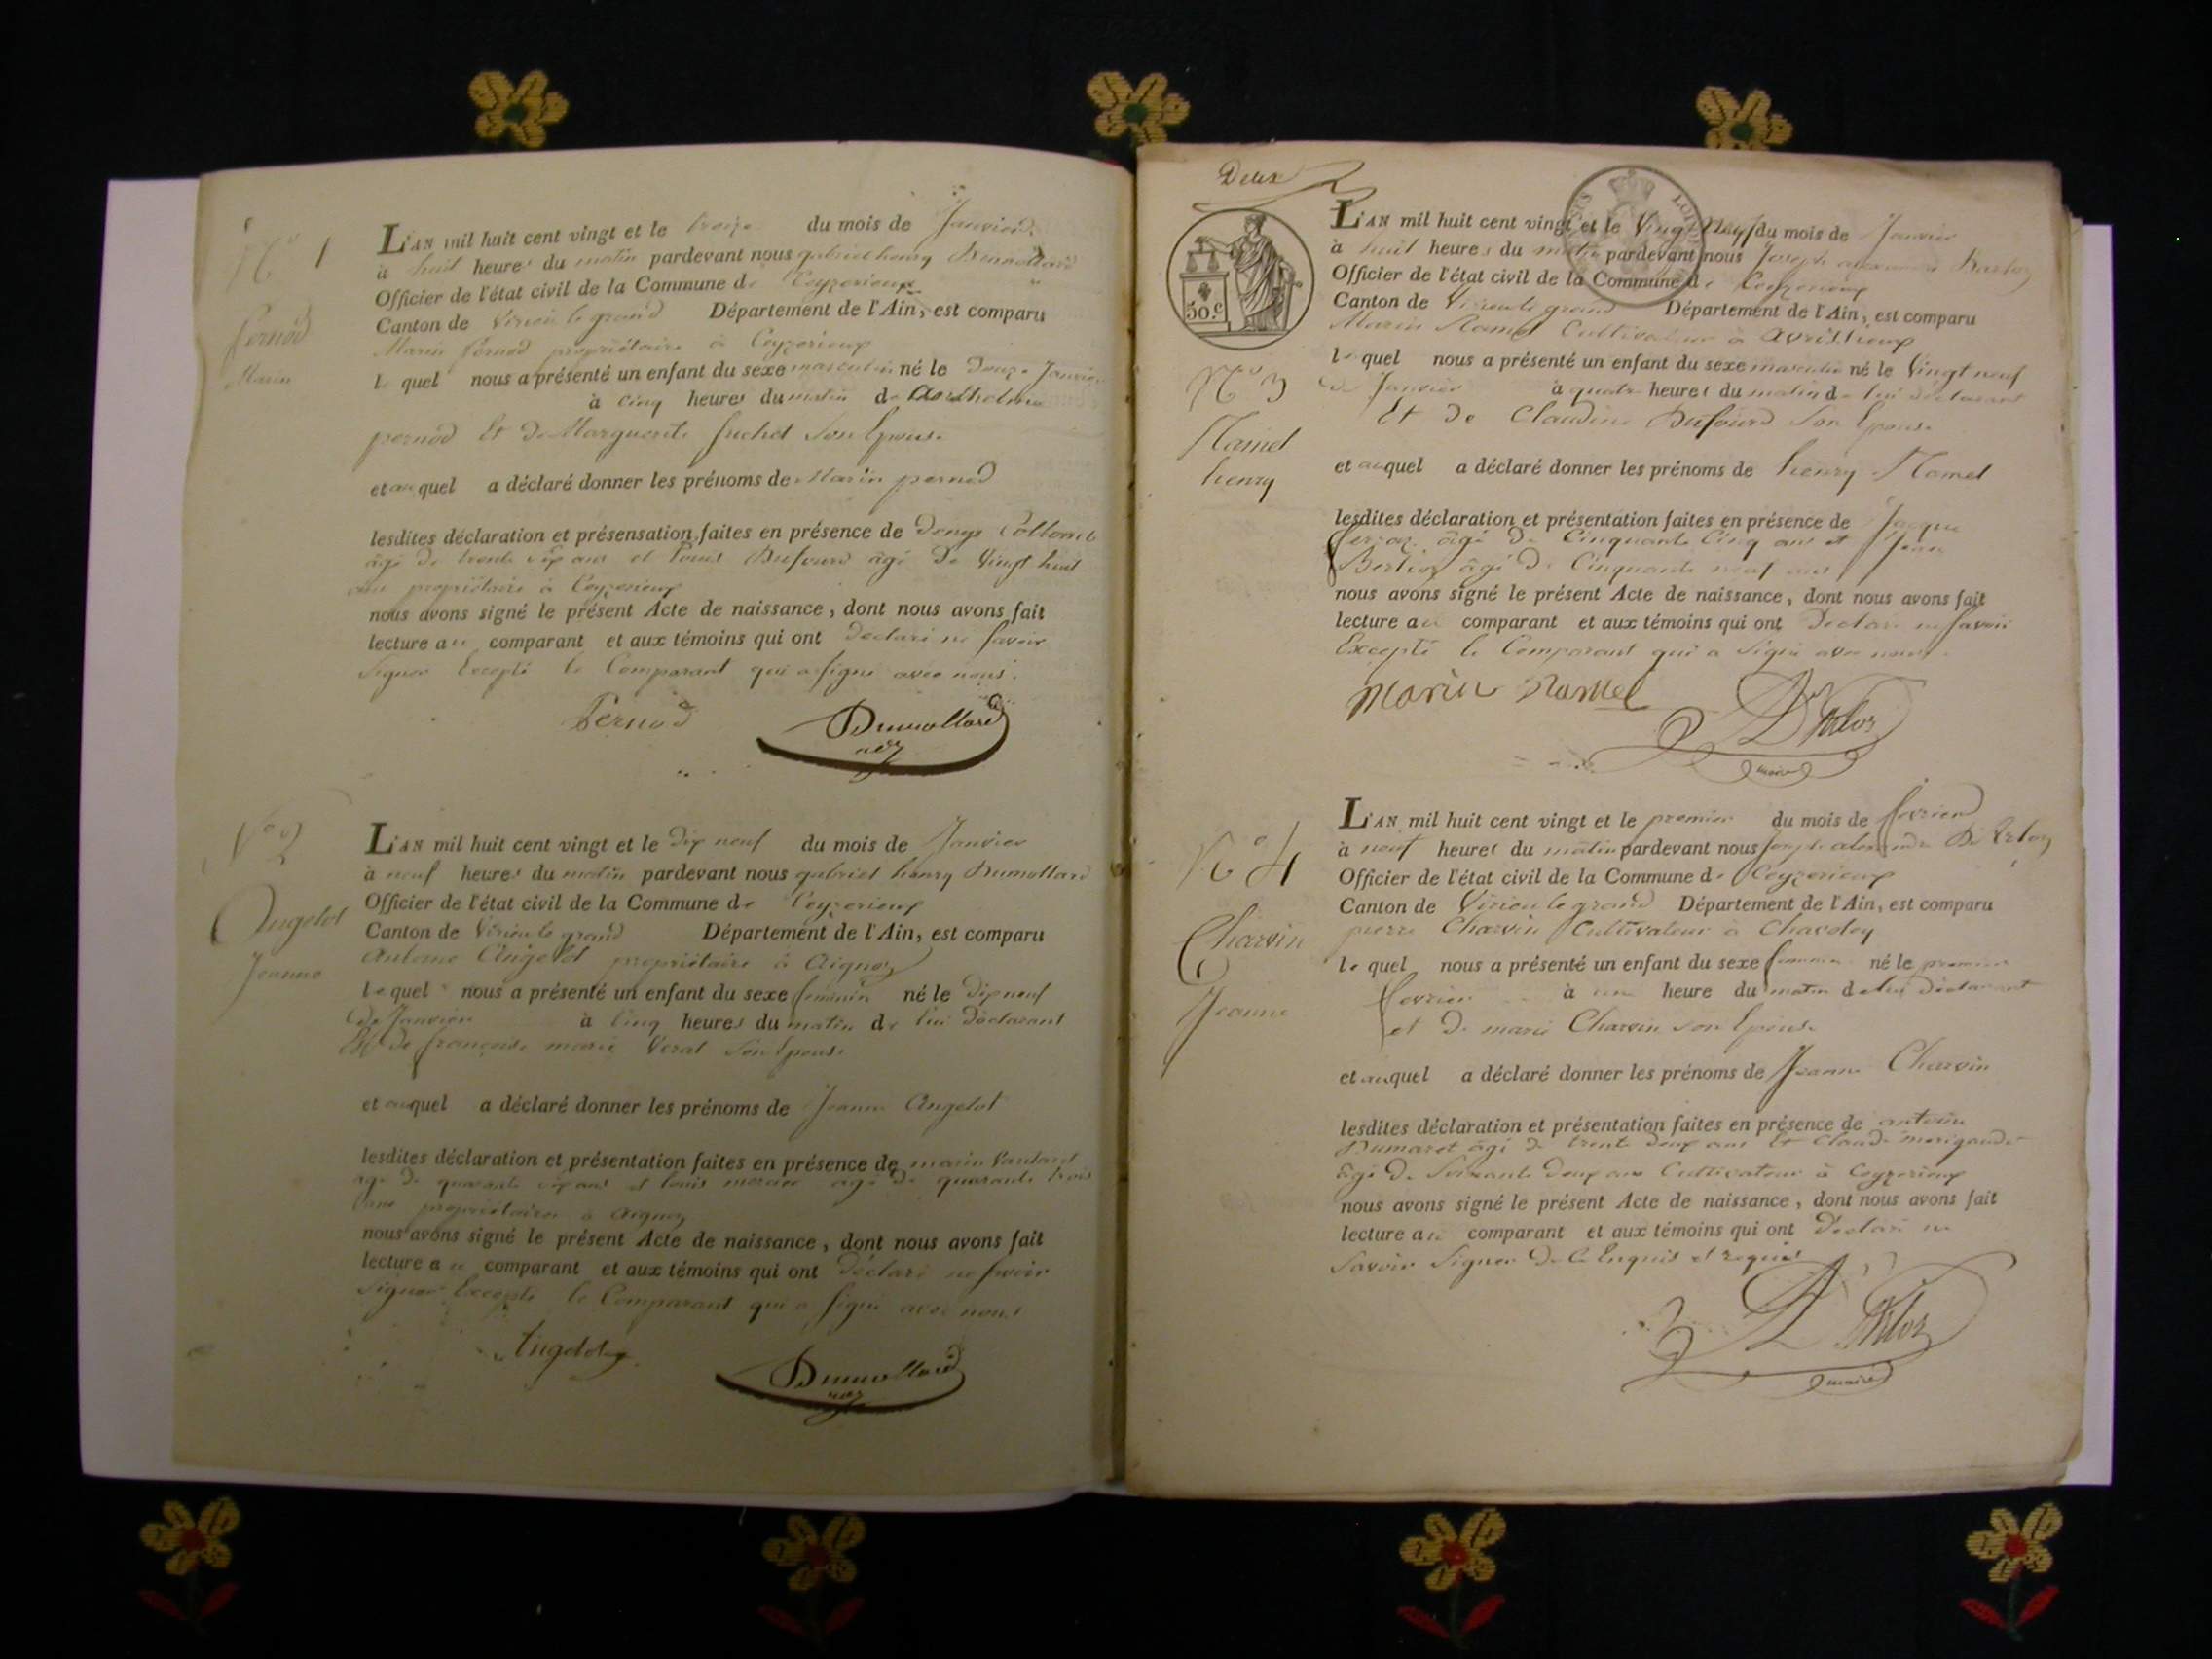 N° 1
Pernod
Marin
L'AN mil huit cent vingt et le treize du mois de Janvier
à huit heures du matin pardevant nous gabriel henry Dumollard
Officier de l'état civil de la Commune de Ceyzerieux
Canton de Virieu le grand Département de l'Ain, est comparu
Marin Pernod propriétaire à Ceyzerieux
le quel nous a présenté un enfant du sexe masculin né le Douze Janvier
à cinq heures du matin de
pernod Et De Marguerite Suchet Son Epouse
et auquel a déclaré donner les prénoms de Marin pernod
lesdites déclaration et présensation faites en présence de Denys Collomb
âgé De trente six ans et Louis Dufourd âgé De Vingt huit
ans propriétaire à Ceyzerieux
nous avons signé le présent Acte de naissance, dont nous avons fait
lecture au comparant et aux témoins qui ont Déclaré ne Savoir
Signer Excepté le Comparant qui a signé avec nous.
Pernod Dumollard
N° 2
Angelot
Jeanne
L'AN mil huit cent vingt et le Dix neuf du mois de Janvier
à neuf heures du matin pardevant nous gabriel henry Dumollard
Officier de l'état civil de la Commune de Ceyzerieux
Canton de Virieu le grand Département de l'Ain, est comparu
Antoine Angelot propriétaire à Aignoz
le quel nous a présenté un enfant du sexe feminin né le Dix neuf
De Janvier à Cinq heures du matin de lui Déclarant
Et de françoise marie Verat Son Epouse
et auquel a déclaré donner les prénoms de Jeanne Angelot
lesdites déclaration et présentation faites en présence de marin
âgé De quarante six ans et louis mercier âgé De quarante trois
ans propriétaires à Aignoz
nous avons signé le présent Acte de naissance, dont nous avons fait
lecture au comparant et aux témoins qui ont Déclaré ne Savoir
Signer Excepté le Comparant qui a signé avec nous
Angelot Dumollard
Deux
30.c
N° 3
Hamel
henry
L'AN mil huit cent vingt et le Vingt Neuf du mois de Janvier
à huit heures du matin pardevant nous Joseph alexandre Darloz
Officier de l'état civil de la Commune de Ceyzerieux
Canton de Virieu le grand Département de l'Ain, est comparu
Marin Hamel Cultivateur à Avrissieux
le quel nous a présenté un enfant du sexe masculin né le Vingt neuf
De Janvier à quatre heures du matin de lui déclarant
Et De Claudine Dufourd Son Epouse
et auquel a déclaré donner les prénoms de henry Hamel
lesdites déclaration et présentation faites en présence de Jacque
âgé De Cinquante Cinq ans et Jean
Berlioz âgé De Cinquante neuf ans
nous avons signé le présent Acte de naissance, dont nous avons fait
lecture au comparant et aux témoins qui ont Déclaré ne Savoir
Excepté le Comparant qui a Signé avec nous.
Marin Hamel D'Arloz
maire
N° 4
Charvin
Jeanne
L'AN mil huit cent vingt et le premier du mois de fevrier
à neuf heures du matin pardevant nous Joseph alexandre D'Arloz
Officier de l'état civil de la Commune de Ceyzerieux
Canton de Virieu le grand Département de l'Ain, est comparu
pierre Charvin Cultivateur à Chavoley
le quel nous a présenté un enfant du sexe né le premier
fevrier à une heure du matin de lui Déclarant
et De marie Charvin Son Epouse
et auquel a déclaré donner les prénoms de Jeanne Charvin
lesdites déclaration et présentation faites en présence de antoine
Dumaret âgé De trente Deux ans Et Claude
âgé De Soixante Deux ans Cultivateur à Ceyzerieux
nous avons signé le présent Acte de naissance, dont nous avons fait
lecture au comparant et aux témoins qui ont Déclaré ne
Savoir Signer De Ce Enquis et requis
D'Arloz
maire